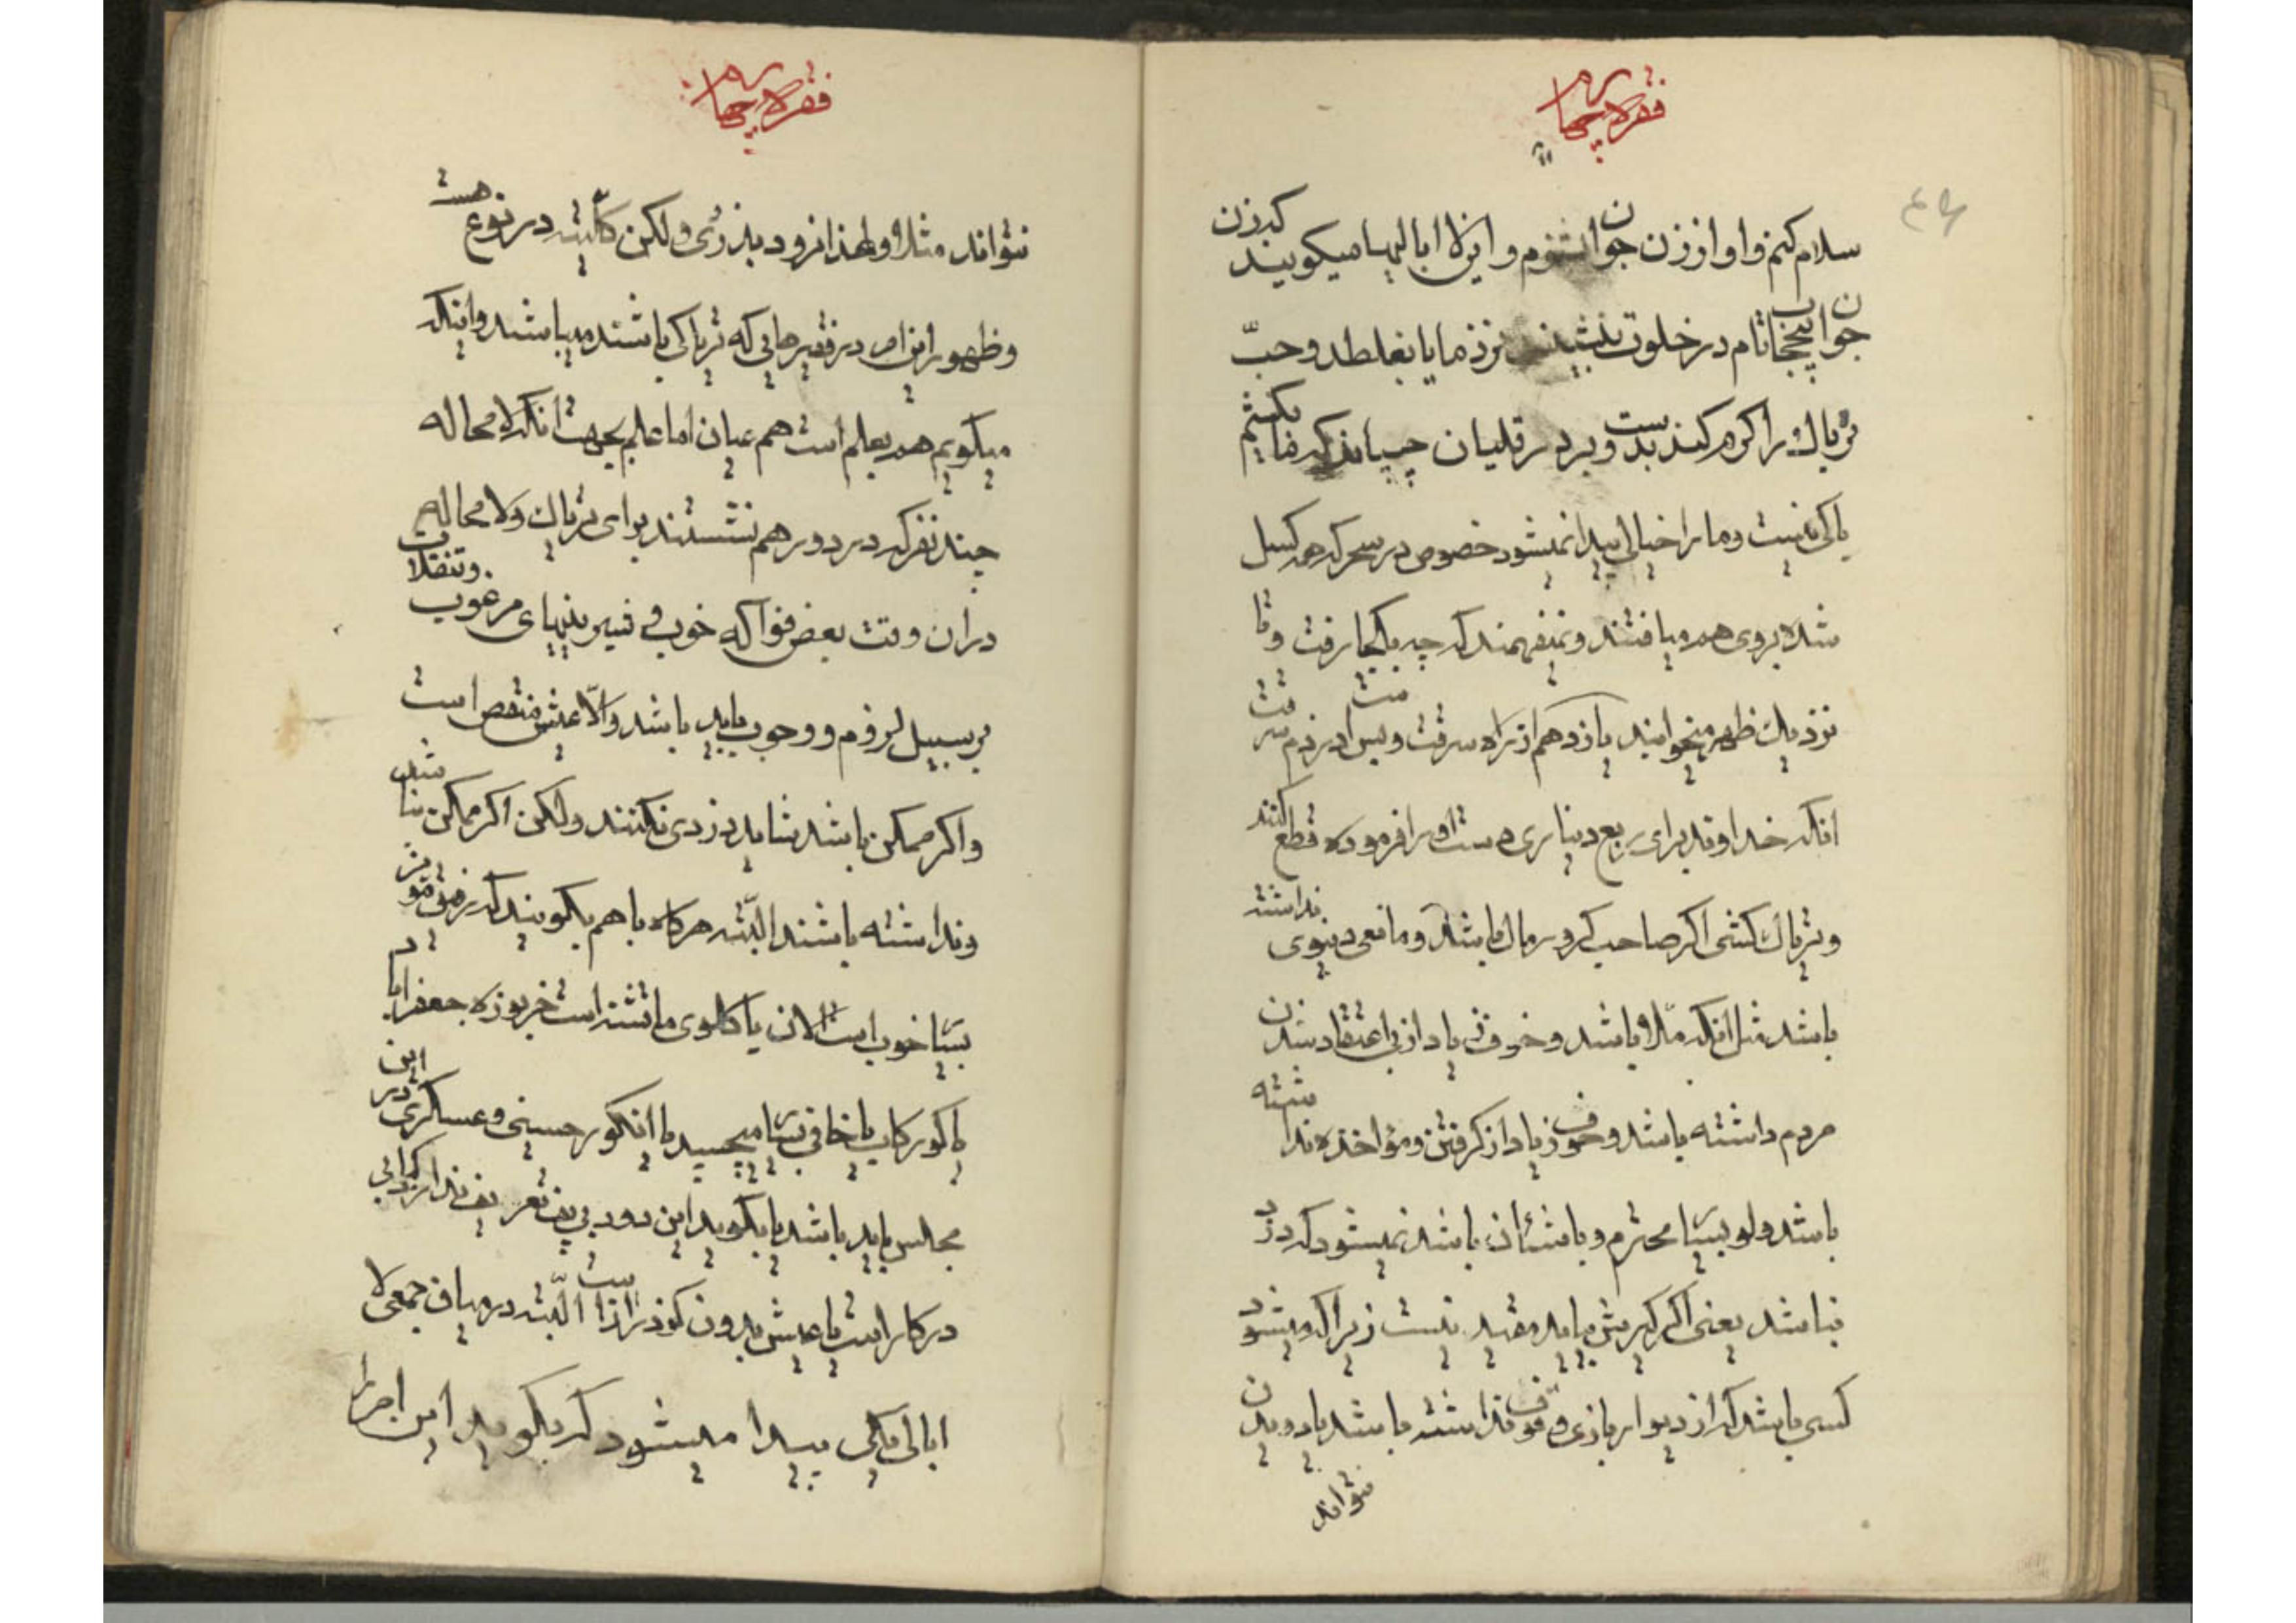 فقره چهارم
سلام کنم و اواز زن جوان بشنوم و این لا ابالیها میکویند که زن
جوان پنججاتام در خلوت بنشیند نزد ما یا بغلطد و حبّ
تریاك را کرم کند بدست و بر در قلیان چسپاند که ما بکشیم
باکی نیست و ما را خیالی پیدا نمیشود خصوص در سحر که همه کسل
شده بروی هم میافتند و نمیفهمند که چه بکجا رفت و تا
نزدیك ظهر میخوابند یازدهم از راه سرقت و پس در ذم سرقت
انکه خداوند برای ربع دیناری دست او را فرموده قطع کنند
و تریاك کشی اکر صاحب کرور مال باشد و مانعی دنیوی نداشته
باشد مثل انکه ملا باشد و خوف زیاد از بی اعتقاد شدن
مردم داشته باشد و خوف زیاد از کرفتن و مؤاخذه نداشته
باشد ولو بسیار محترم و با شئان باشد نمیشود که دزد
نباشد یعنی اکر کیرش بیاید مقید نیست زیرا که میشود
کسی باشد که از دیوار بازی وقوف نداشته باشد یا دویدن
نتواند
فقره چهارم
نتواند مثلا و لهذا نرود بدزدی ولکن کالبته در نوع هست
و ظهور این امر در فقیرهایی که تریاکی باشند میباشد و اینکه
میکویم هم بعلم است هم عیان اما علم بجهت انکه لا محاله
چند نفر که در دور هم نشستند برای تریاك و لا محاله
در ان وقت بعض فواکه خوب و شیرینیهای مرغوب و تنقلات
بر سبیل لزوم و وجوب باید باشد و الّا عیش منقص است
و اکر ممکن باشد شاید دزدی نکنند ولکن اکر ممکن نباشد
و نداشته باشند البتّه هرکاه با هم بکویند که
بسیار خوب است الان یا کاهوی است خربوزه جعفراباد
یا کورکاب یا خافی بسیار میچسبد یا انکور حسینی و عسکری در این
مجلس باید باشد یا بکوید این دود بی پف تعریف ندارد کبابی
در کار است یا عیش بدون البتّه در میان جمعی لا
ابالی یکی پیدا میشود که بکوید این اجرا